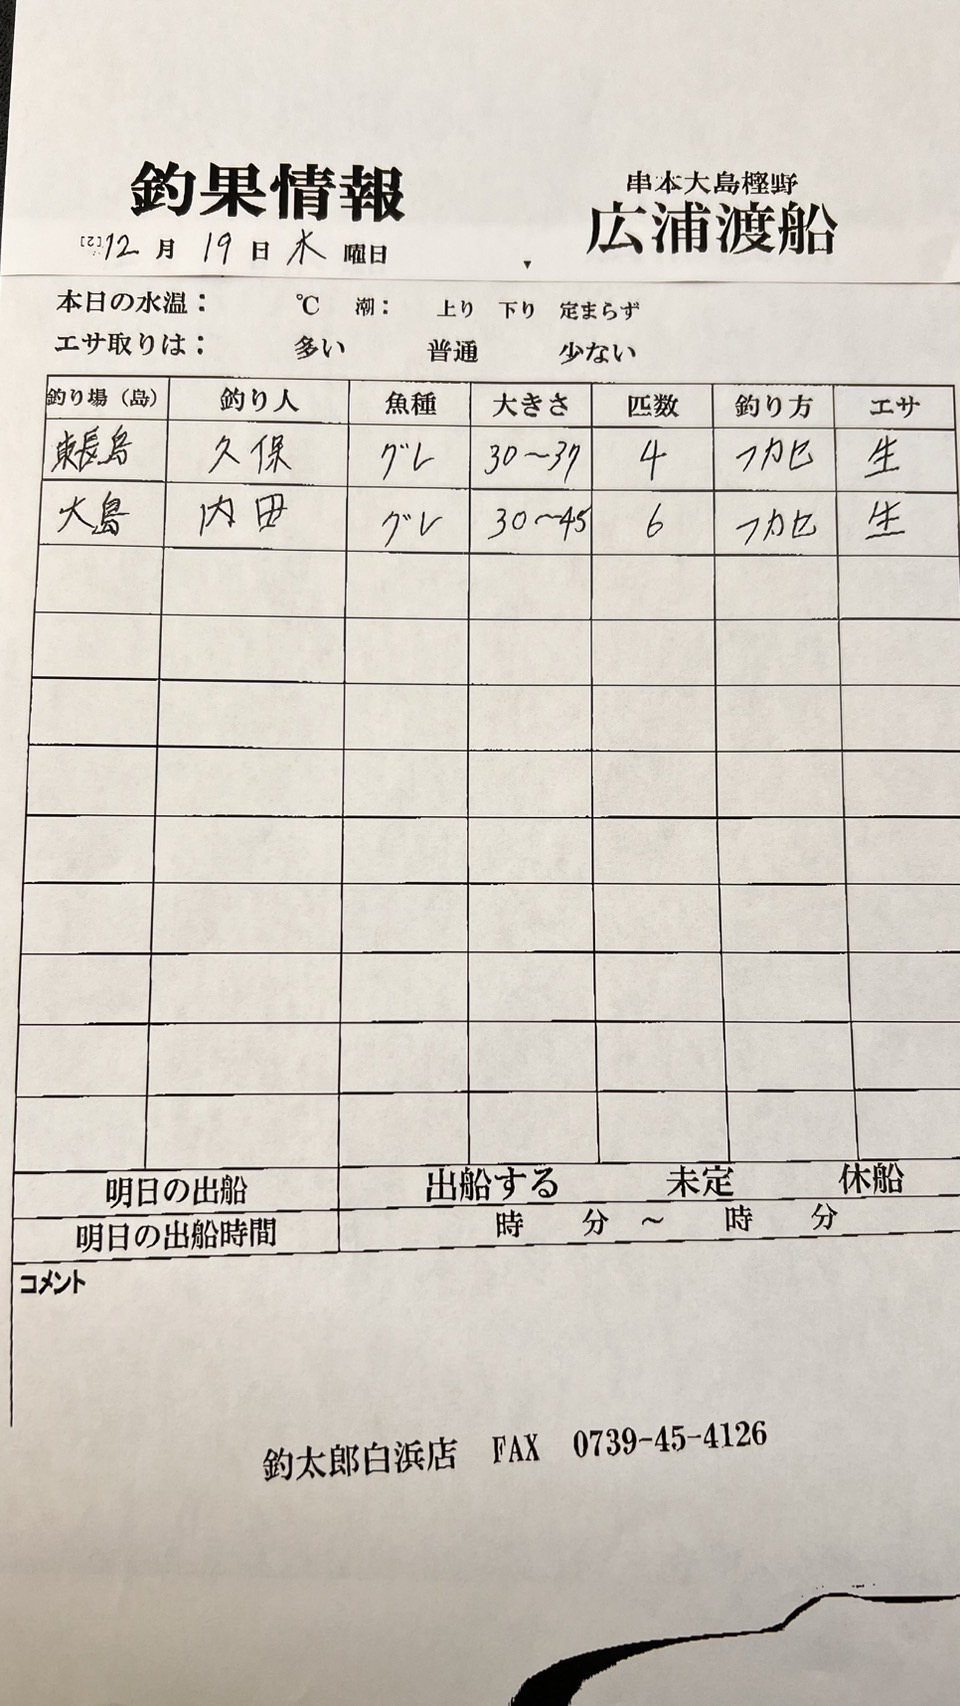 釣果情報
串本大島樫野
広浦渡船
[2] 12月 19日 木 曜日
本日の水温： ℃ 潮： 上り 下り 定まらず
エサ取りは： 多い 普通 少ない
釣り場（島） 釣り人 魚種 大きさ 匹数 釣り方 エサ
東長島 久保 グレ 30〜37 4 フカセ 生
大島 内田 グレ 30〜45 6 フカセ 生
明日の出船 出船する 未定 休船
明日の出船時間 時 分 〜 時 分
コメント
釣太郎白浜店 FAX 0739-45-4126